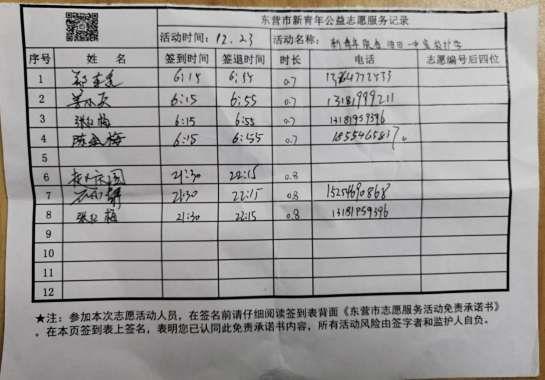 东营市新青年公益志愿服务记录
活动时间: 12.23 活动名称:
序号 姓 名 签到时间 签退时间 时长 电话 志愿编号后四位
1 6:15 6:55 0.7
2 6:15 6:55 0.7 13181999211
3 张红梅 6:15 6:55 0.7 13181959396
4 陈金梅 6:15 6:55 0.7
5
6 21:30 22:15 0.8
7 21:30 22:15 0.8 15254690868
8 张红梅 21:30 22:15 0.8 13181959396
9
10
11
12
★注: 参加本次志愿活动人员, 在签名前请仔细阅读签到表背面《东营市志愿服务活动免责承诺书》
。在本页签到表上签名, 表明您已认同此免责承诺书内容, 所有活动风险由签字者和监护人自负。